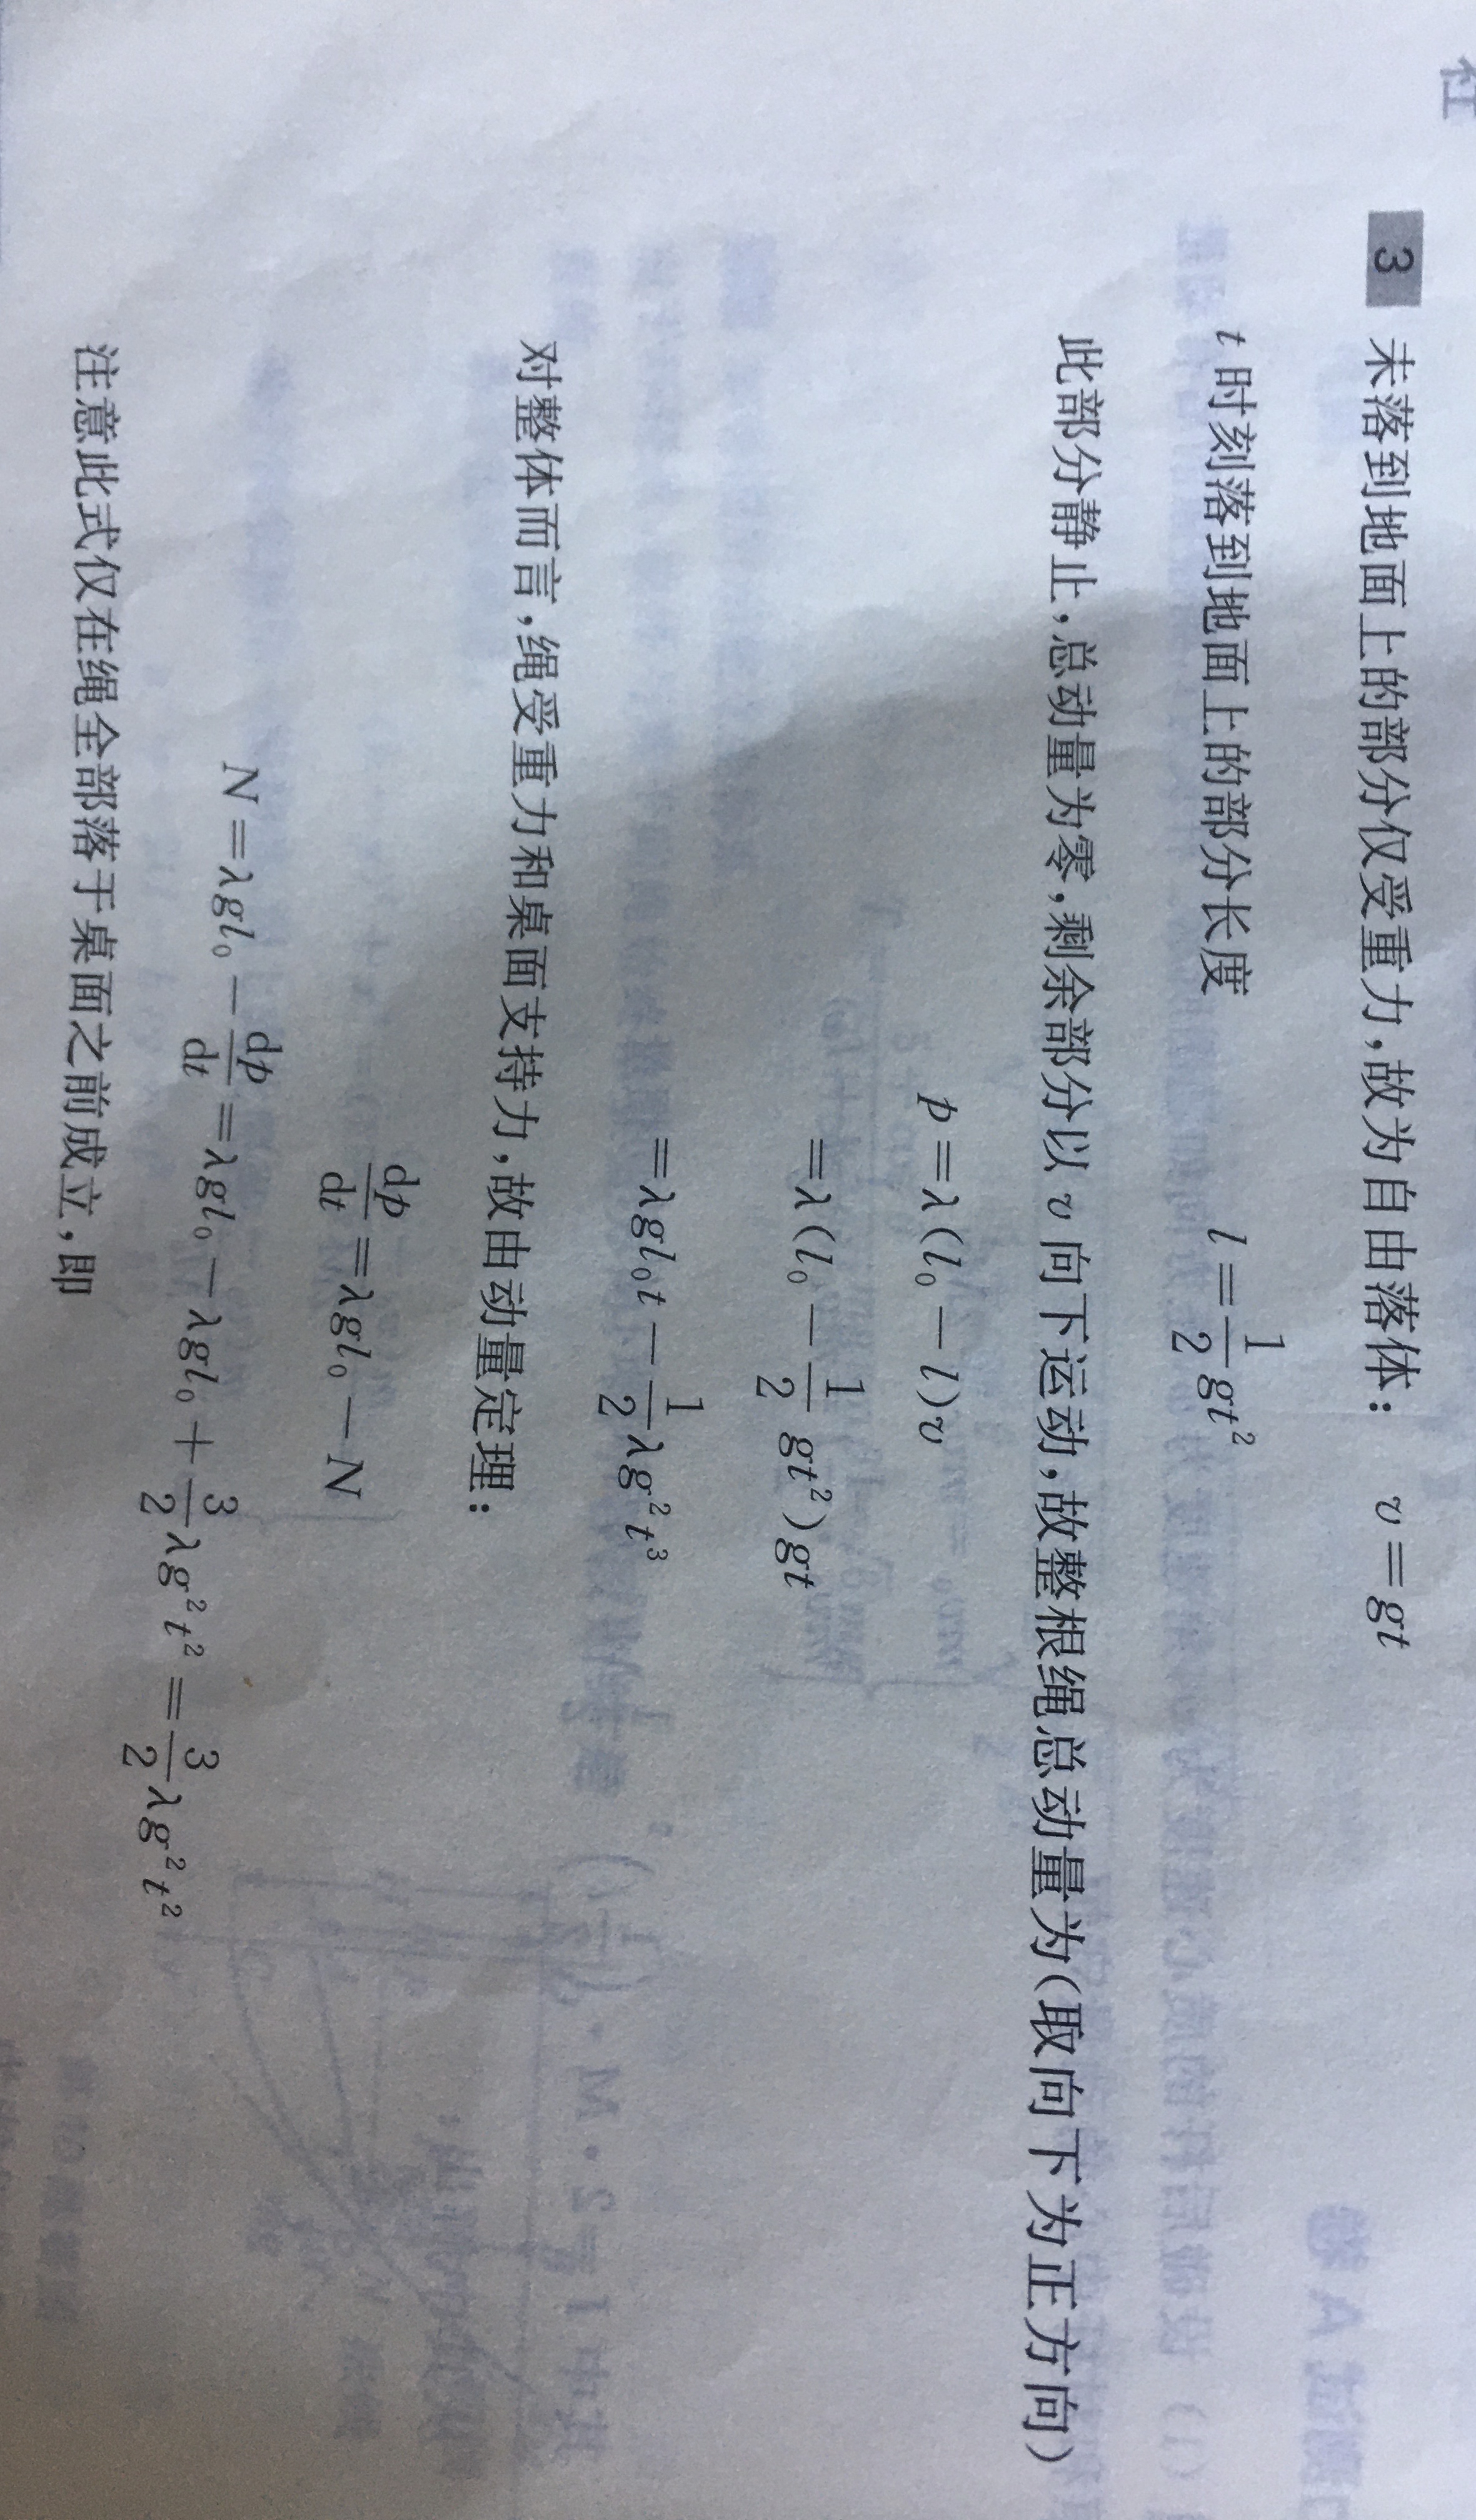 社
3 未落到地面上的部分仅受重力,故为自由落体: v=gt
t 时刻落到地面上的部分长度 l=\frac{1}{2}gt²
此部分静止,总动量为零,剩余部分以 v 向下运动,故整根绳总动量为(取向下为正方向)
p=λ(l₀-l)v
=λ(l₀-\frac{1}{2}gt²)gt
=λgl₀t-\frac{1}{2}λg²t³
对整体而言,绳受重力和桌面支持力,故由动量定理:
\frac{dp}{dt}=λgl₀-N
N=λgl₀-\frac{dp}{dt}=λgl₀-λgl₀+\frac{3}{2}λg²t²=\frac{3}{2}λg²t²
注意此式仅在绳全部落于桌面之前成立,即